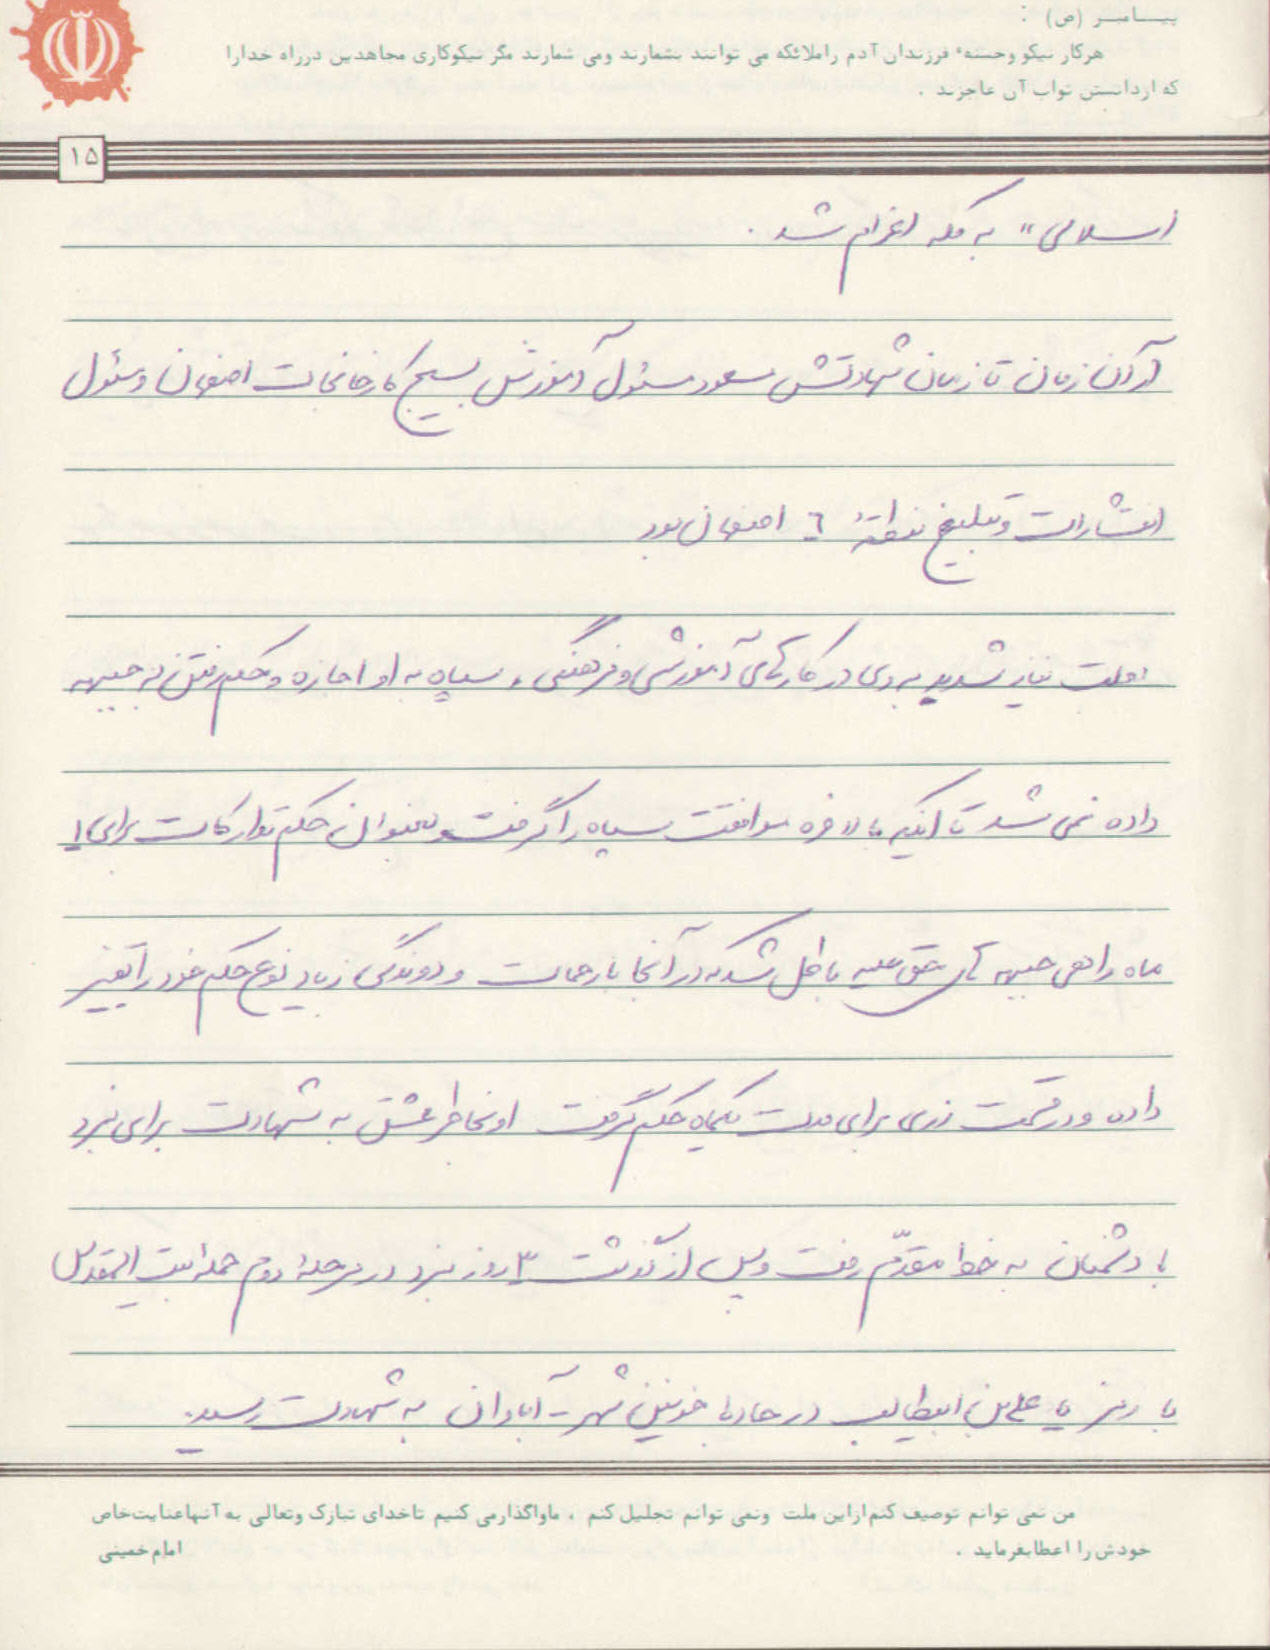 پیـــامبـــر (ص) :
هرکار نیکو وحسنهٔ فرزندان آدم راملائکه می توانند بشمارند ومی شمارند مگر نیکوکاری مجاهدین درراه خدارا
که ازدانستن ثواب آن عاجزند .
۱۵
اسلامی" به مکه اعزام شد .
از آن زمان تا زمان شهادتش مسعود مسئول آموزش بسیج کارخانجات اصفهان و مسئول
انتشارات و تبلیغ منطقهٔ ٦ اصفهان بود
بعلت نیاز شدید به وی در کارهای آموزشی و فرهنگی ، سپاه به او اجازه و حکم رفتن به جبهه
داده نمی شد تا اینکه بالاخره موافقت سپاه را گرفت و بعنوان حکم تدارکات برای ۱
ماه راهی جبهه های حق علیه باطل شد که در آنجا با زحمات و دوندگی زیاد نوع حکم خود را تغییر
داده و در قسمت رزمی برای مدت یکماه حکم گرفت او بخاطر عشق به شهادت برای نبرد
با دشمنان به خط مقدّم رفت و پس از گذشت ۳ روز نبرد در مرحلهٔ دوم حمله بیت المقدس
با رمز یا علی بن ابیطالب در جادهٔ خونین شهر - آبادان به شهادت رسید.
من نمی توانم توصیف کنم ازاین ملت ونمی توانم تجلیل کنم ، ماواگذارمی کنیم تاخدای تبارک وتعالی به آنهاعنایت خاص
خودش را اعطابفرماید .
امام خمینی